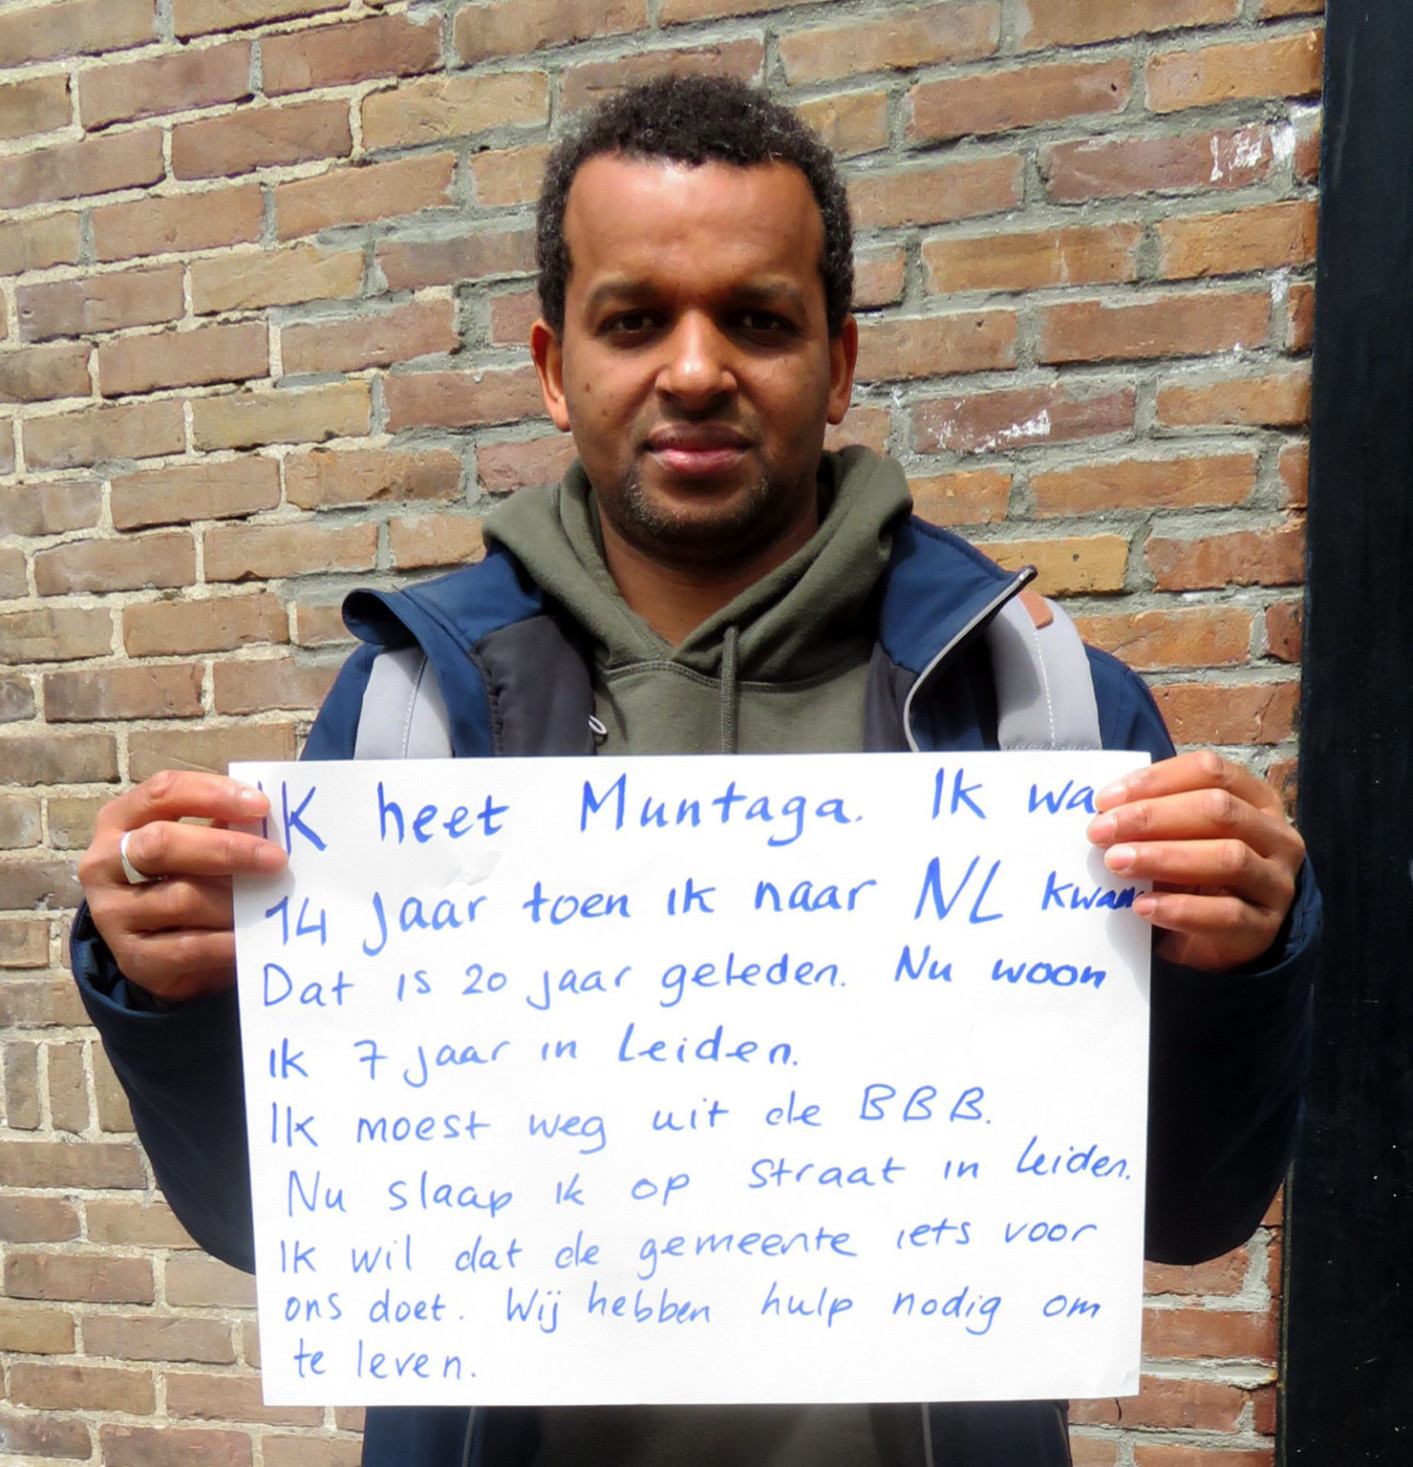 Ik heet Muntaga. Ik wa
14 jaar toen ik naar NL kwam
Dat is 20 jaar geleden. Nu woon
ik 7 jaar in Leiden.
Ik moest weg uit de BBB.
Nu slaap ik op straat in Leiden.
Ik wil dat de gemeente iets voor
ons doet. Wij hebben hulp nodig om
te leven.